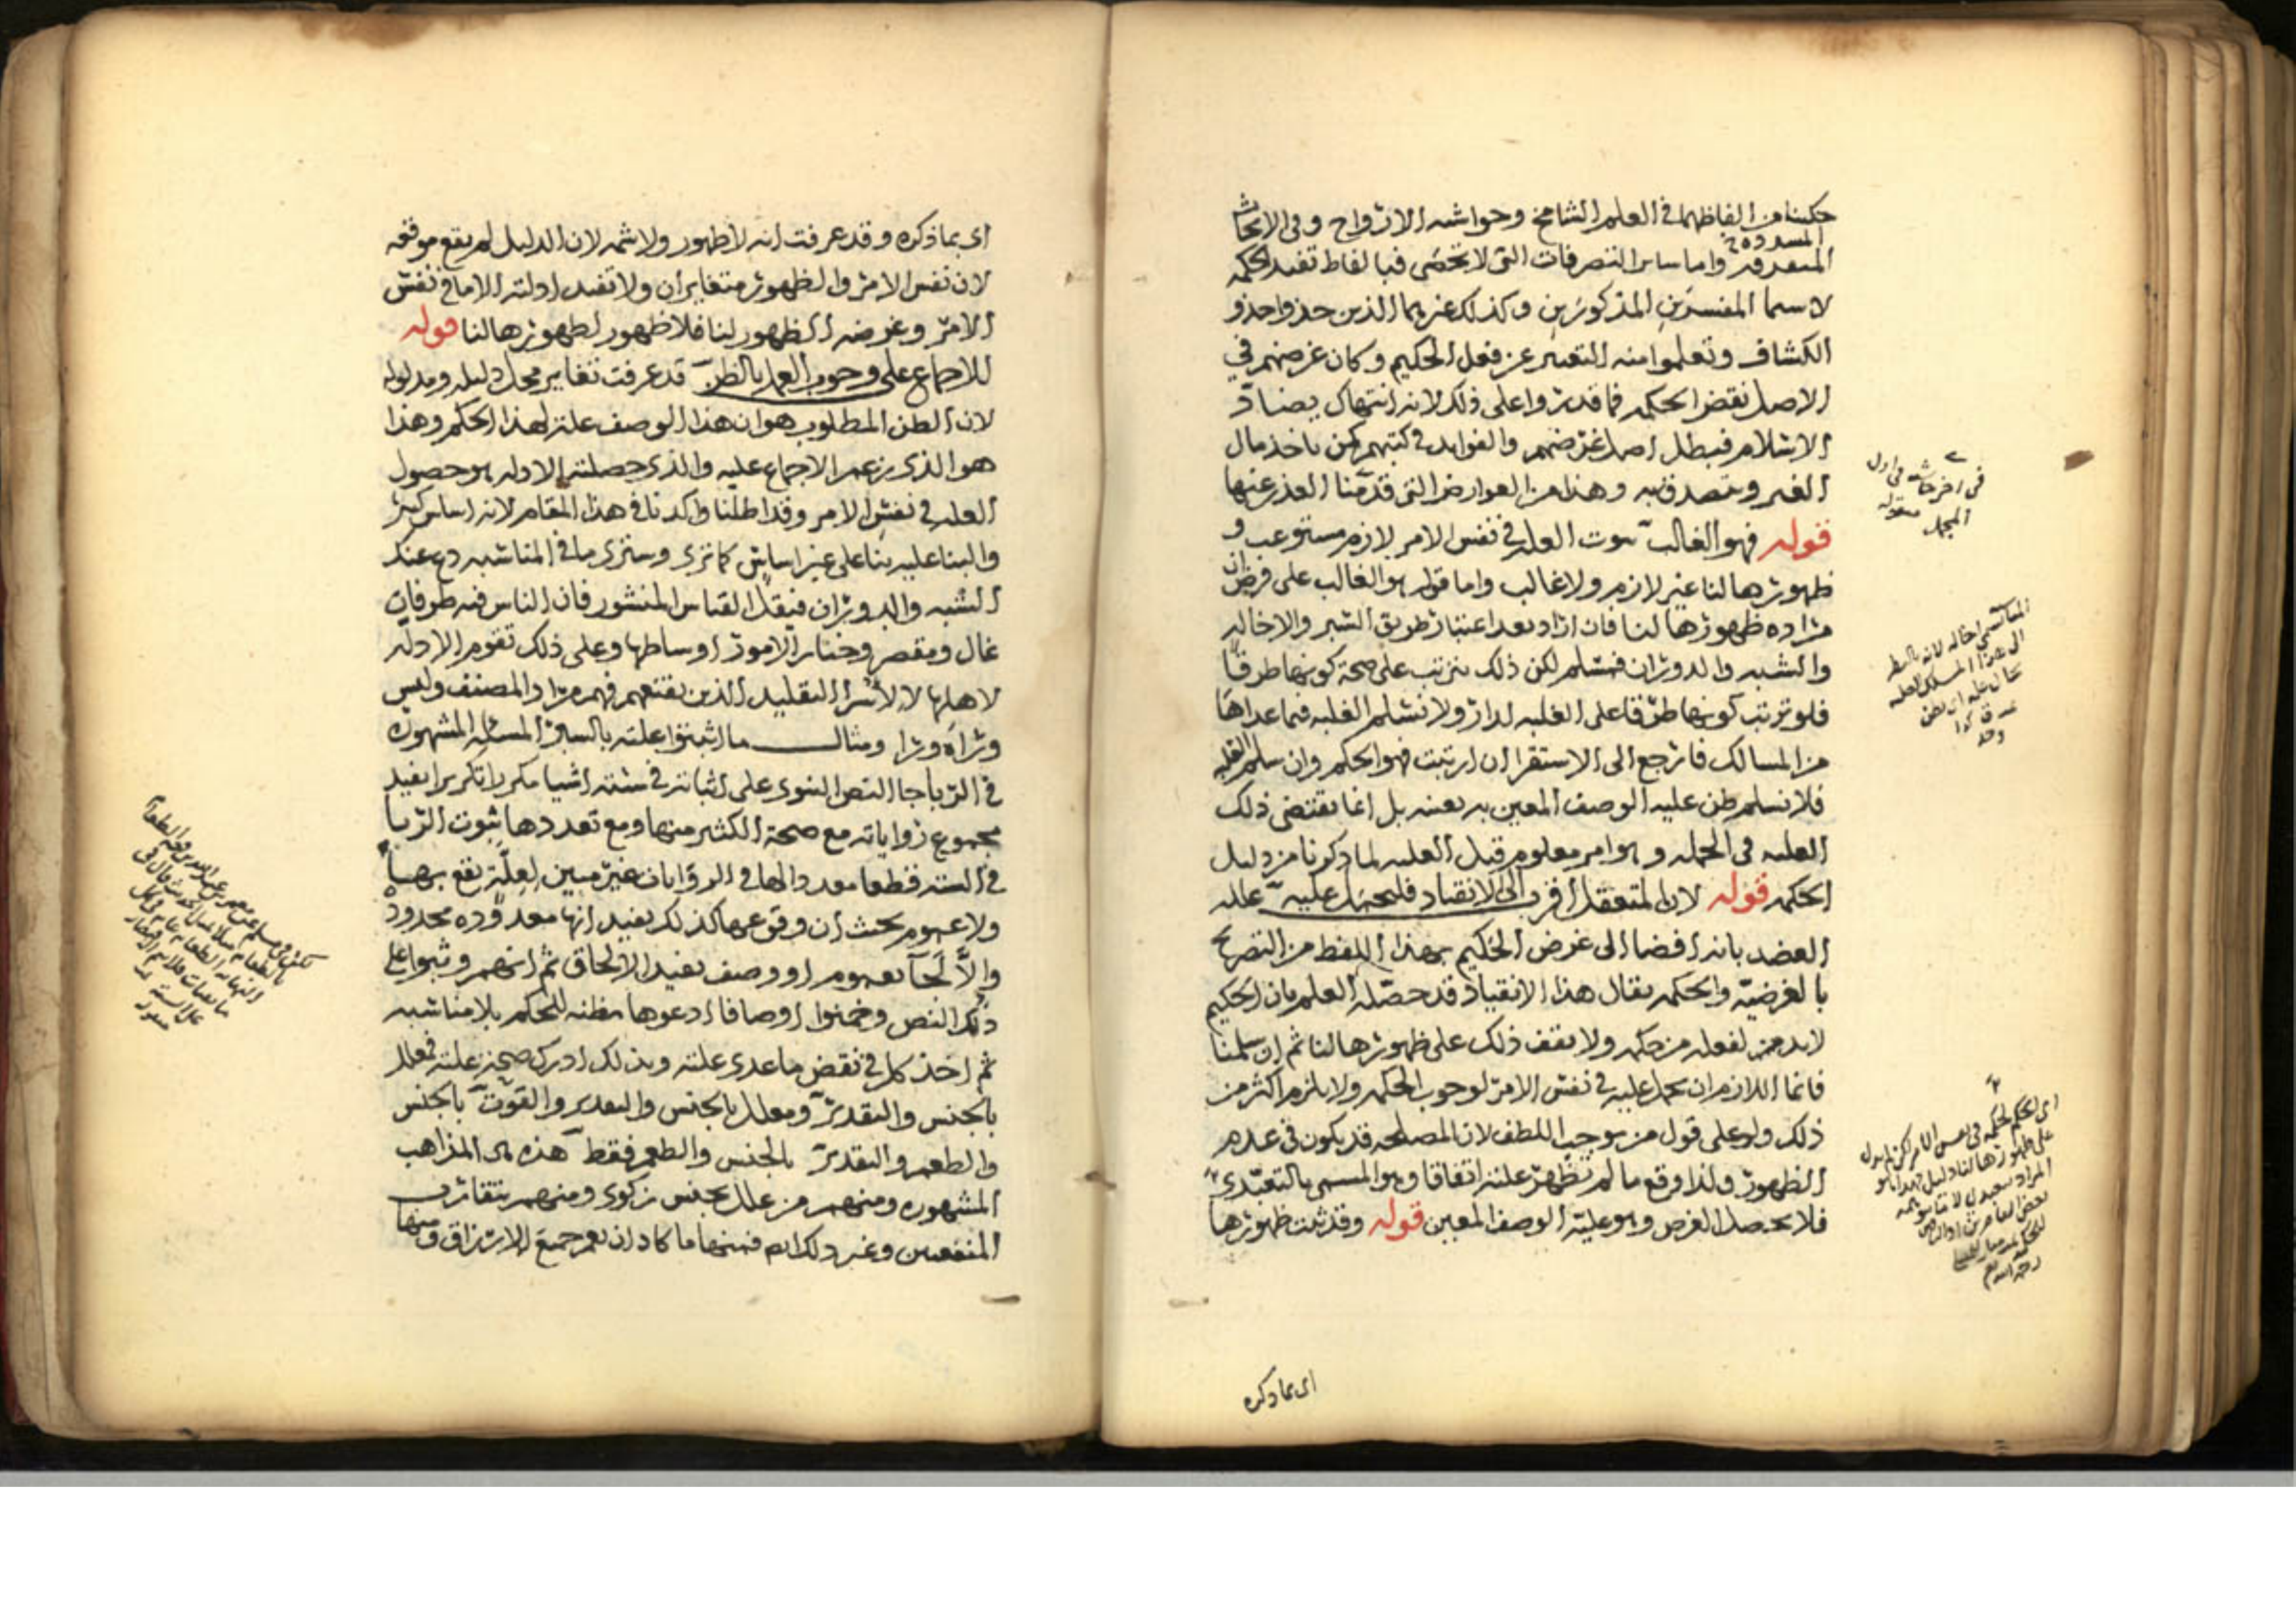 حكينا من الفاظهما في العلم الشامخ وحواشيه الارواح وفي الابحاث
المسدده
المتعدده واما ساير التصرفات التي لا تحصى فبالفاظ تفيد الحكمه
لا سيما المفسرين المذكورين وكذلك غيرهما الذين حذو واحذو
الكشاف وتعلموا منه التعبير عن فعل الحكيم وكان غرضهم في
الاصل نقض الحكمه فما قدروا على ذلك لانه انتهاك يضاد
الاسلام فبطل اصل غرضهم والفوايد في كتبهم كمن ياخذ مال
الغير ويتصدق به وهذا من العوارض التي قدمنا العذر عنها
قوله فهو الغالب ثبوت العله في نفس الامر لازم مستوعب و
ظهورها لنا غير لازم ولا غالب واما قوله هو الغالب على فرض ان
مراده ظهورها لنا فان اراد بعد اعتبار طريق السبر والاخاله
والشبه والدوران فمسلم لكن ذلك يترتب على صحة كونها طرقا
فلو ترتب كونها طرقا على الغلبه لدار ولا نسلم الغلبه فيما عداها
من المسالك فارجع الى الاستقرا ان ارتبت فهو الحكم وان سلم الغلبه
فلا نسلم ظن عليه الوصف المعين به بعينه بل انما يقتضي ذلك
العليه في الجمله وهو امر معلوم قبل الغلبه لما ذكرنا من دليل
الحكمه قوله لان المتعقل اقرب الى الانقياد فليحمل عليه علله
العضد بانه افضا الى غرض الحكيم بهذا اللفظ من التصريح
بالغرضيه والحكمه يقال هذا الانقياد قد حصله العلم بان الحكيم
لابد من لفعله من حكمه ولا يقف ذلك على ظهورها لنا ثم ان سلمنا
فانما اللازم ان يحمل عليه في نفس الامر لوجوب الحكمه ولا يلزم اكثر من
ذلك ولو على قول من يوجب اللطف لان المصلحه قد يكون في عدم
الظهور ولذا وقع ما لم تظهر علته اتفاقا وهو المسمى بالتعبدي
فلا يحصل الغرض وهو علية الوصف المعين قوله وقد ثبت ظهورها
اي بما ذكره
اي بما ذكره وقد عرفت انه لا ظهور ولا ثمه لان الدليل لم يقع موقعه
لان نفس الامر والظهور متغايران ولا تفيد ادلته الا ما في نفس
الامر وغرضه الظهور لنا فلا ظهور لظهورها لنا قوله
للاجماع على وجوب العمل بالظن قد عرفت تغاير محل دليله ومدلوله
لان الظن المطلوب هو ان هذا الوصف علة لهذا الحكم وهذا
هو الذي يزعم الاجماع عليه والذي حصلته الادله هو حصول
العله في نفس الامر وقد اطلنا واكدنا في هذا المقام لانه اساس كبير
والبنا عليه بنا على غير اساس كما ترى وسترى ما في المناسبه دع عنك
الشبه والدوران فيقل القياس المنشور فان الناس فيه طرفان
غال ومقصر وخيار الامور اوساطها وعلى ذلك تقوم الادله
لاهلها لا لاسرا التقليد الذين يقنعهم فهم مراد المصنف وليس
وراه ورا ومثال ما اثبتوا علته بالسبر المسئله المشهوره
في الربا جا النص النبوي على اثباته في سته اشيا مكررا تكريرا يفيد
مجموع رواياته مع صحة الكثير منها ومع تعددها ثبوت الربا
في السته قطعا معدد الها في الروايات غير مبين لعلة يقع بها
ولا عموم بحيث ان وقوعها كذلك يفيد انها معدوده محدوده
والا لجآ بعموم او وصف يفيد الالحاق ثم انهم وثبوا على
ذلك النص وخمنوا اوصافا ادعوها مظنه للحكم بلا مناسبه
ثم اخذ كل في نقض ما عدى علته وبذلك ادرك صحة علته فمعلل
بالجنس والتقدير ومعلل بالجنس والتقدير والقوت بالجنس
والطعم والتقدير بالجنس والطعم فقط هذه هي المذاهب
المشهوره ومنهم من علل بجنس زكوي ومنهم بتقارب
المنفعتين وغير ذلك فمنها ما كاد ان يعم جميع الارزاق ومنها